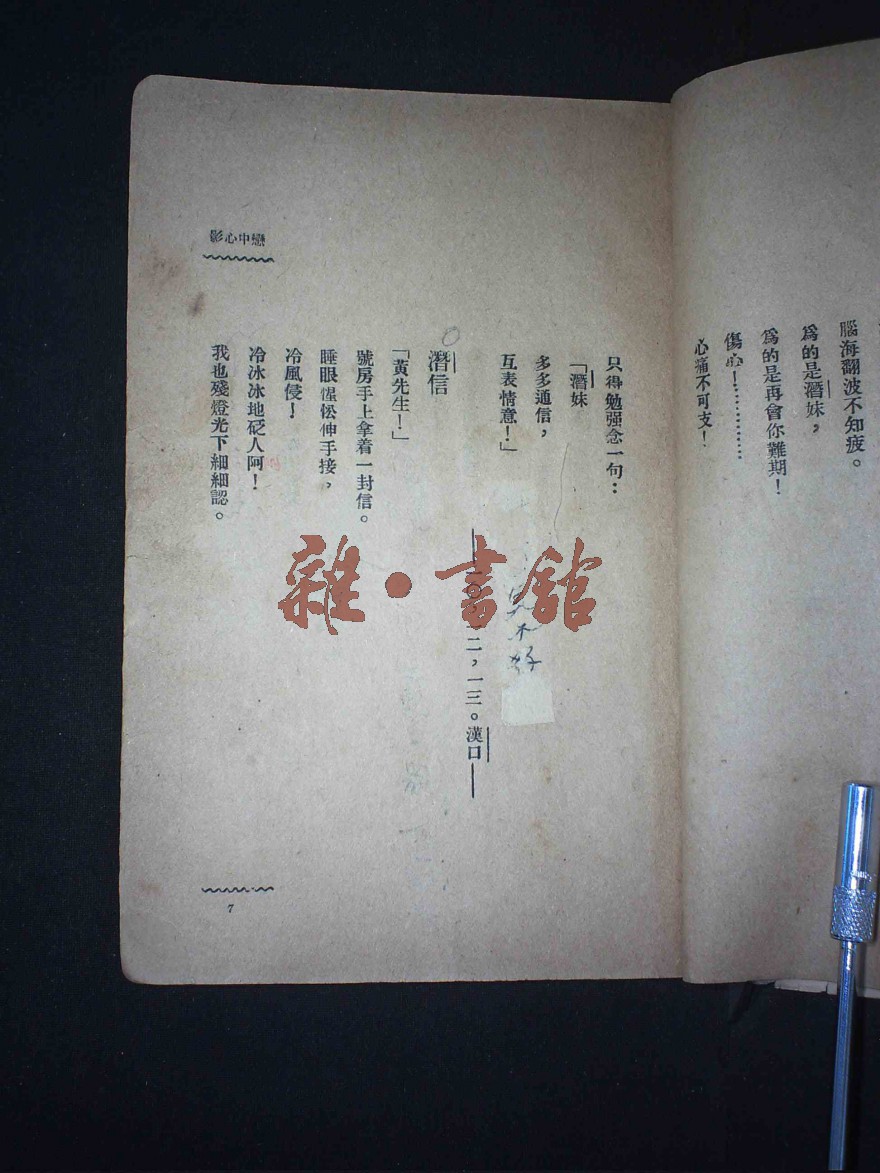 腦海翻波不知疲。
爲的是潛妹，
爲的是再會你難期！
傷心！……………
心痛不可支！
只得勉强念一句：
「潛妹
多多通信，
互表情意！」
二，一三。漢口——
潛信
「黃先生！」
號房手上拿着一封信。
睡眼惺忪伸手接，
冷風侵！
冷冰冰地砭人阿！
我也殘燈光下細細認。
影心中戀
7
雜·書舘